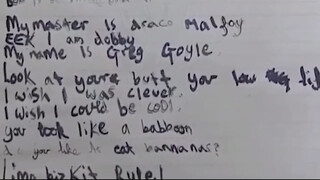 My master is draco Malfoy
EEK I am dobby
My name is Greg Goyle.
Look at youre butt you low
I wish I was clever.
I wish I could be cool.
you look like a babboon
do you like to eat bannanas?
Limp bizkit Rule!